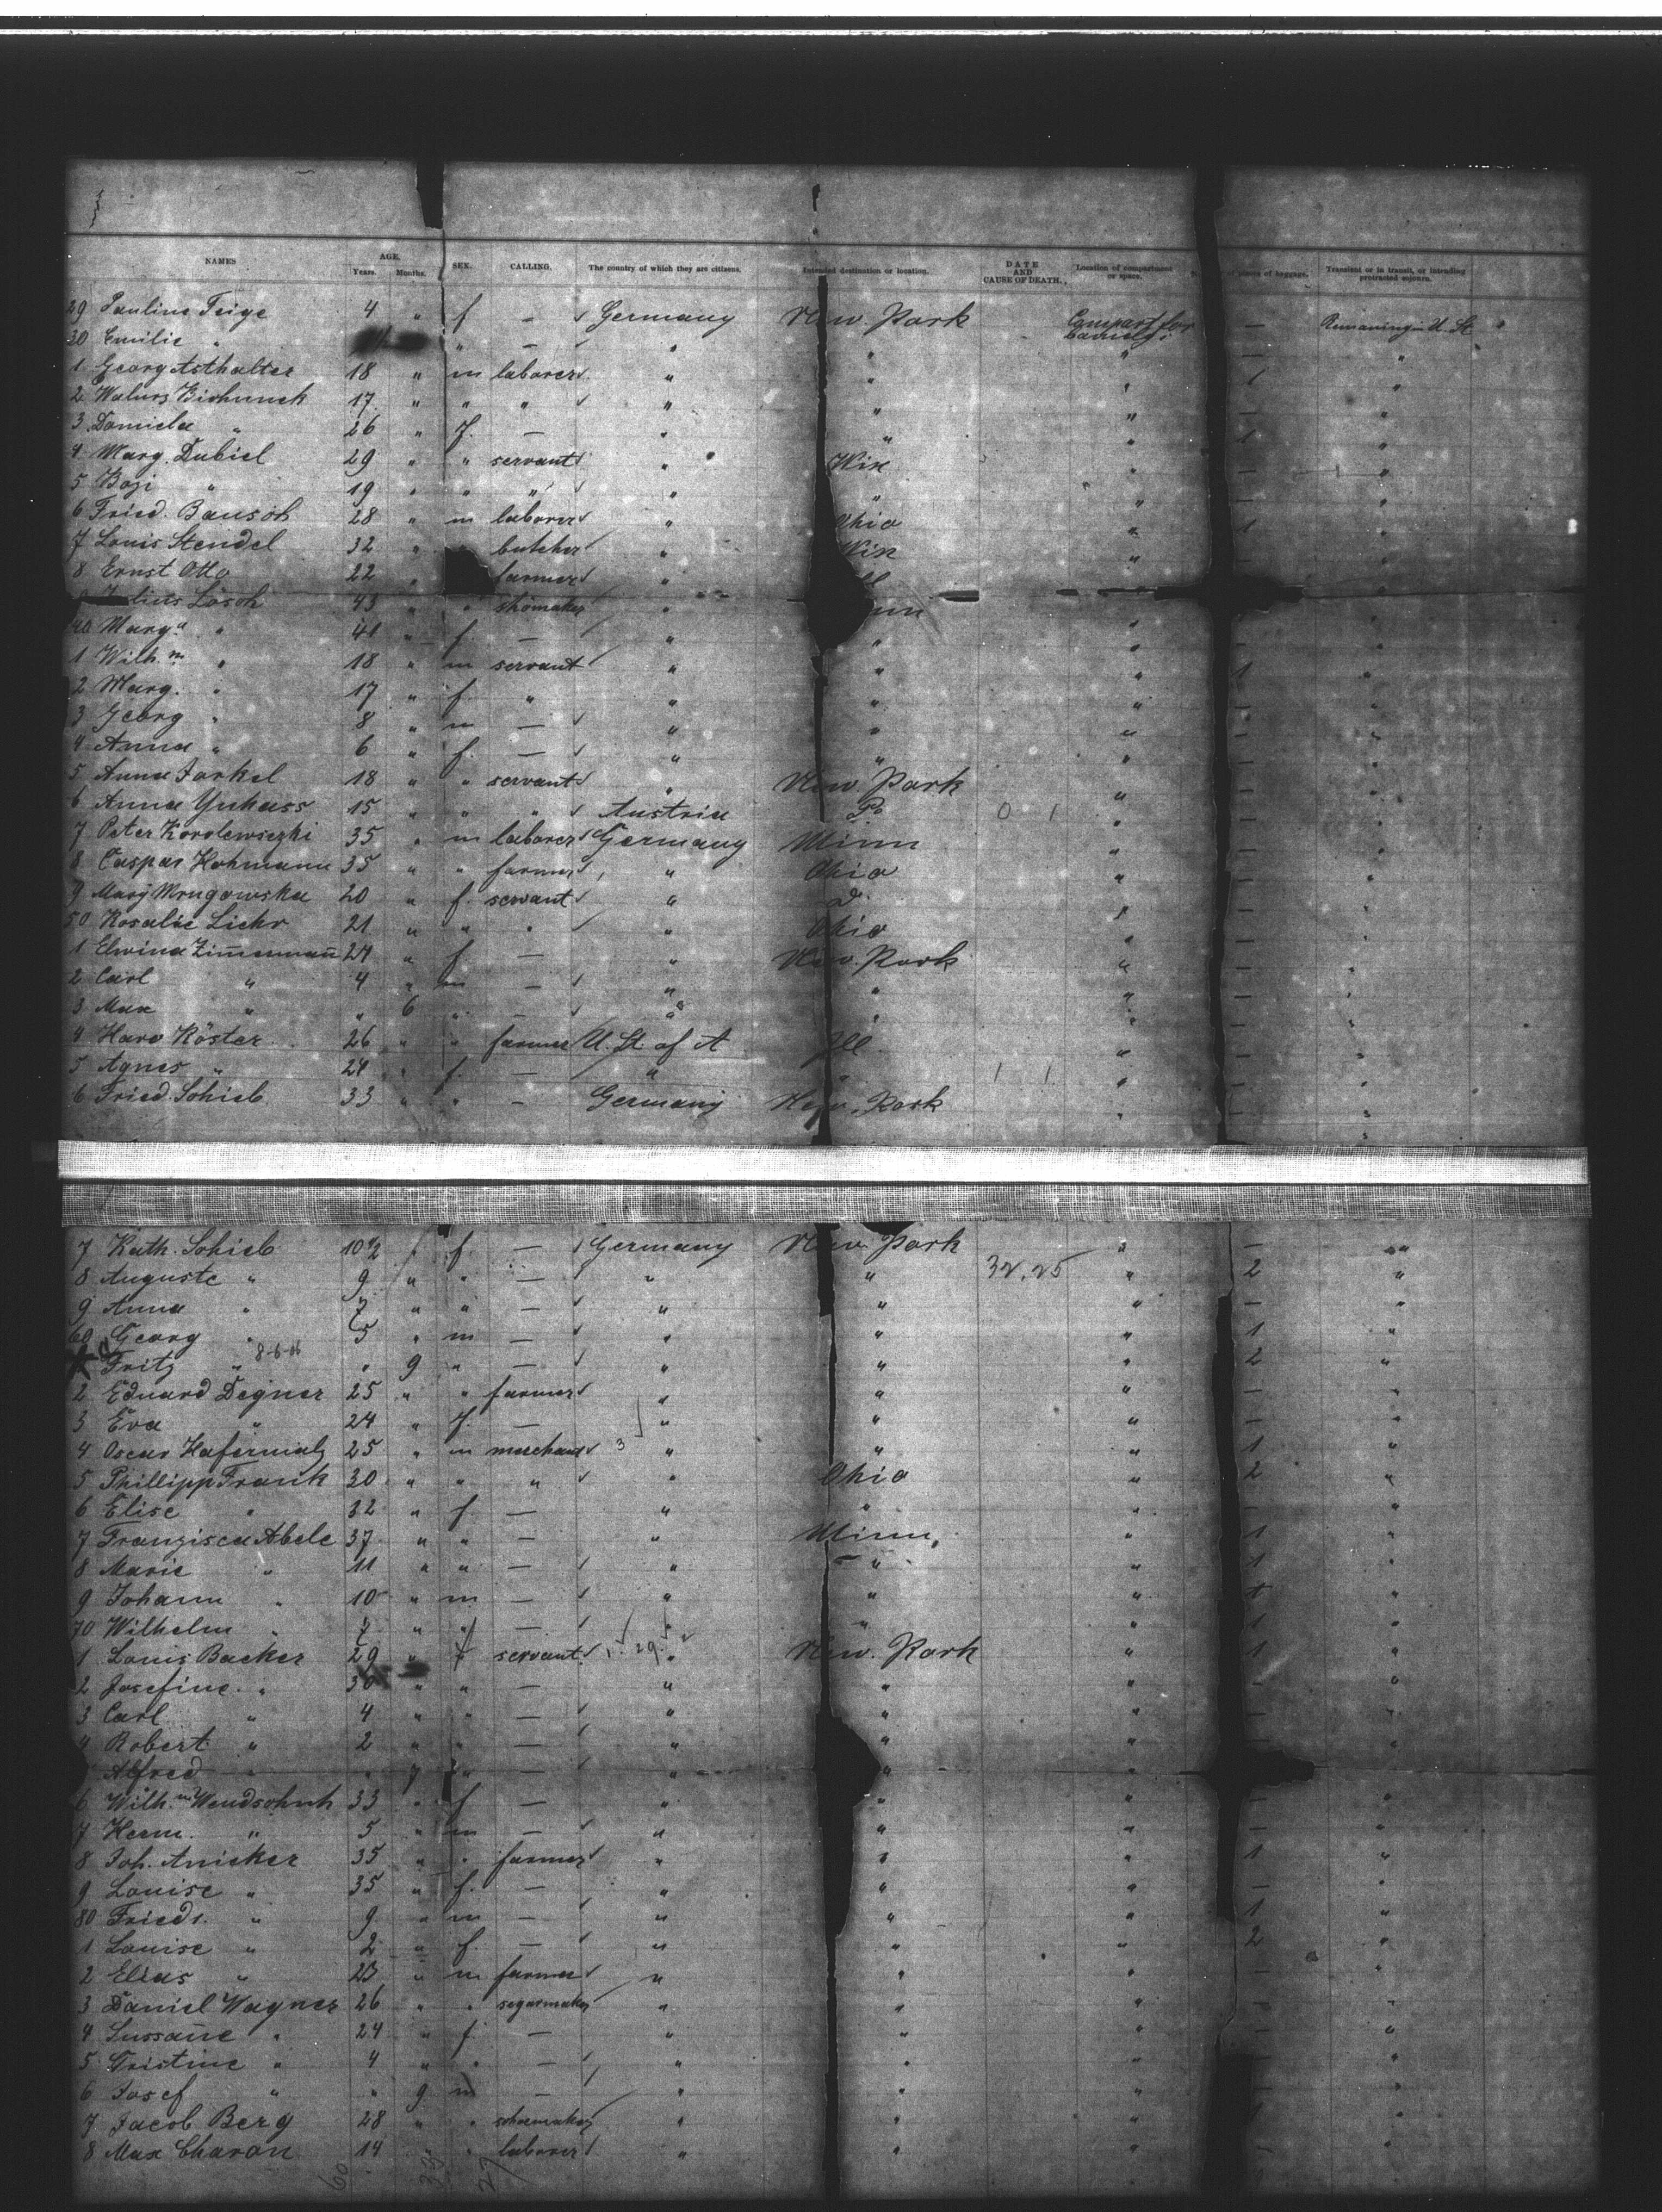 NAMES AGE. Years. Months. SEX. CALLING. The country of which they are citizens. Intended destination or location. DATE AND CAUSE OF DEATH. Location of compartment or space. of pieces of baggage. Transient or in transit, or intending protracted sojourn.
29 Pauline Feige 4 " f - Germany New York Compart for — Remaining in U. St.
30 Emilie " " — " " " — "
1 Georg Asthalter 18 " m laborer " " " 1 "
2 17 " " " " " " — "
3 26 " f. — " " " 1 "
4 Marg. Dubiel 29 " " servant " Win " — "
5 " 19 " " " " " " — "
6 Fried. Bausch 28 " m laborer " Ohio " 1 "
7 Louis Stendel 32 " butcher " Win "
8 Ernst Otto 22 " farmer "
Lösch 43 " " shomaker " "
40 Marg.a " 41 " f. — " " " — "
1 Wilh.m " 18 " m servant " " " 1 "
2 Marg. " 17 " f. " " " " - "
3 Georg " 8 " m — " " " - "
4 Anna " 6 " f. — " " " - "
5 Anna 18 " " servant " New York " - "
6 Anna Yuhass 15 " " " Austria Pa 0 1 " - "
7 Peter Korolewiezki 35 " m laborer Germany Minn " - "
8 Caspar Hohmann 35 " " farmer " Ohio " - "
9 Mary Mrugowska 20 " f. servant " " - "
50 Rosalie Lickr 21 " " " " Ohio " - "
1 Elwina Zim̅erman̅ 24 " f — " New York " - "
2 Carl " 4 " m — " " " — "
3 Max " " 6 " — " " " — "
4 Köster 26 " " farmer U. St. of A Ill. " — "
5 Agnes " 24 " f. — " " 1 1 " — "
6 Fried. Schieb 33 " " - Germany New York " — "
7 Kath. Schieb 10 1/2 " f. — Germany New York " — "
8 Auguste " 9 " " — " " 32.25 " 2 "
9 Anna " 7 " " — " " " — "
60 Georg " 5 " m — " " " 1 "
Fritz " 8-6-06 " 9 " — " " " 2 "
2 Eduard Degner 25 " " farmer " " " — "
3 Eva " 24 " f. — " " " — "
4 Oscar Hafermalz 25 " m merchant 3 " " " 1 "
5 Phillipp Frank 30 " " " " Ohio " 2 "
6 Elise " 32 " f — " " " — "
7 Franzisca Abele 37 " " — " Minn. " 1 "
8 Marie " 11 " " — " " " 1 "
9 Johann " 10 " m — " " " 1 "
70 Wilhelm " 7 " " — " " " 1 "
1 Louis Backer 29 " servant 29 " New York " 1 "
2 Josefine " 30 " " — " " " "
3 Carl " 4 " " — " " " "
4 Robert " 2 " " — " " " "
Alfred " " 7 " — " " " "
6 Wilh.m Wendschuh 33 " f — " " " — "
7 Herm. " 5 " m — " " " — "
8 Joh. Anicker 35 " " farmer " " " 1 "
9 Louise " 35 " f. — " " " — "
80 Friedr. " 9 " m — " " " 1 "
1 Louise " 2 " f. — " " " 2 "
2 Elias " 23 " m farmer " " " — "
3 Daniel Wagner 26 " " segarmaker " " " — "
4 Sussan̅e " 24 " f. — " " " — "
5 Cristine " 4 " " — " " " "
6 Josef " " 9 m — " " " "
7 Jacob Berg 28 " " schoemaker " " " 1 "
8 Max Charon 14 " " laborer " " " — "
60 33 27